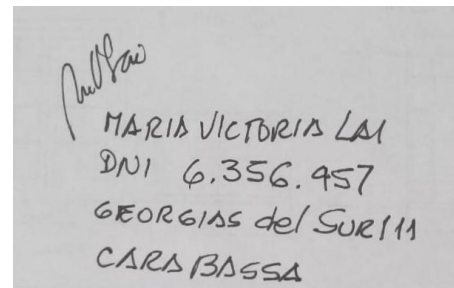 MARIA VICTORIA LAI
DNI 6.356.457
GEORGIAS del SUR 111
CARABASSA